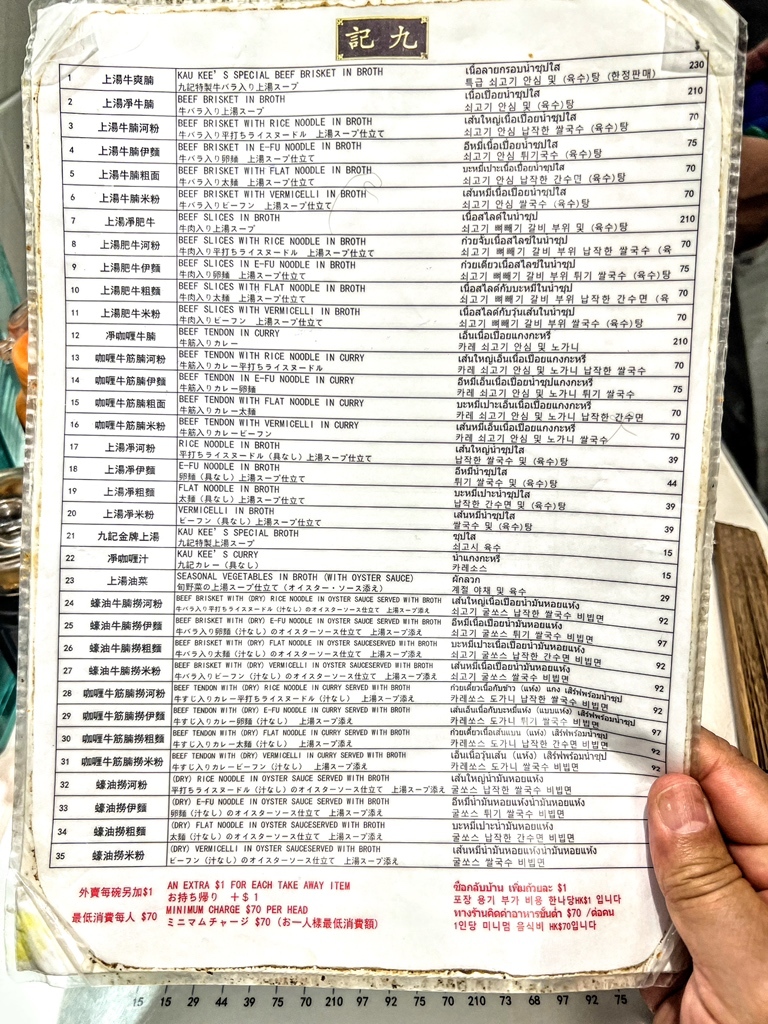 九記
$
1 上湯牛爽腩 KAU KEE'S SPECIAL BEEF BRISKET IN BROTH เนื้อลายกรอบน้ำซุปใส 230
九記特製牛バラ入り上湯スープ 특급 쇠고기 안심 및 (육수)탕 (한정판매)
2 上湯凈牛腩 BEEF BRISKET IN BROTH เนื้อเปื่อยน้ำซุปใส 210
牛バラ入り上湯スープ 쇠고기 안심 및 (육수)탕
3 上湯牛腩河粉 BEEF BRISKET WITH RICE NOODLE IN BROTH เส้นใหญ่เนื้อเปื่อยน้ำซุปใส 70
牛バラ入り平打ちライスヌードル 上湯スープ仕立て 쇠고기 안심 납작한 쌀국수 (육수)탕
4 上湯牛腩伊麵 BEEF BRISKET IN E-FU NOODLE IN BROTH อีหมี่เนื้อเปื่อยน้ำซุปใส 75
牛バラ入り卵麺 上湯スープ仕立て 쇠고기 안심 튀기국수 (육수)탕
5 上湯牛腩粗面 BEEF BRISKET WITH FLAT NOODLE IN BROTH บะหมี่เปาะเนื้อเปื่อยน้ำซุปใส 70
牛バラ入り太麺 上湯スープ仕立て 쇠고기 안심 납작한 간수면 (육수)탕
6 上湯牛腩米粉 BEEF BRISKET WITH VERMICELLI IN BROTH เส้นหมี่เนื้อเปื่อยน้ำซุปใส 70
牛バラ入りビーフン 上湯スープ仕立て 쇠고기 안심 쌀국수 (육수)탕
7 上湯凈肥牛 BEEF SLICES IN BROTH เนื้อสไลด์ในน้ำซุป 210
牛肉入り上湯スープ 쇠고기 뼈빼기 갈비 부위 및 (육수)탕
8 上湯肥牛河粉 BEEF SLICES WITH RICE NOODLE IN BROTH ก๋วยจั๊บเนื้อสไลซ์ในน้ำซุป 70
牛肉入り平打ちライスヌードル 上湯スープ仕立て 쇠고기 뼈빼기 갈비 부위 납작한 쌀국수 (육
9 上湯肥牛伊麵 BEEF SLICES IN E-FU NOODLE IN BROTH ก๋วยเตี๋ยวเนื้อสไลซ์ในน้ำซุป 75
牛肉入り卵麺 上湯スープ仕立て 쇠고기 뼈빼기 갈비 부위 튀기 쌀국수 (육수)탕
10 上湯肥牛粗麵 BEEF SLICES WITH FLAT NOODLE IN BROTH เนื้อสไลด์กับบะหมี่ในน้ำซุป 70
牛肉入り太麺 上湯スープ仕立て 쇠고기 뼈빼기 갈비 부위 납작한 간수면 (육
11 上湯肥牛米粉 BEEF SLICES WITH VERMICELLI IN BROTH เนื้อสไลด์กับวุ้นเส้นในน้ำซุป 70
牛肉入りビーフン 上湯スープ仕立て 쇠고기 뼈빼기 갈비 부위 쌀국수 (육수)탕
12 凈咖喱牛腩 BEEF TENDON IN CURRY เอ็นเนื้อเปื่อยแกงกะหรี่ 210
牛筋入りカレー 카레 쇠고기 안심 및 노가니
13 咖喱牛筋腩河粉 BEEF TENDON WITH RICE NOODLE IN CURRY เส้นใหญ่เอ็นเนื้อเปื่อยแกงกะหรี่ 70
牛筋入りカレー平打ちライスヌードル 카레 쇠고기 안심 및 노가니 납작한 쌀국수
14 咖喱牛筋腩伊麵 BEEF TENDON IN E-FU NOODLE IN CURRY อีหมี่เอ็นเนื้อเปื่อยน้ำซุปแกงกะหรี่ 75
牛筋入りカレー卵麺 카레 쇠고기 안심 및 노가니 튀기 쌀국수
15 咖喱牛筋腩粗面 BEEF TENDON WITH FLAT NOODLE IN CURRY บะหมี่เปาะเอ็นเนื้อเปื่อยแกงกะหรี่ 70
牛筋入りカレー太麺 카레 쇠고기 안심 및 노가니 납작한 간수면
16 咖喱牛筋腩米粉 BEEF TENDON WITH VERMICELLI IN CURRY เส้นหมี่เอ็นเนื้อเปื่อยแกงกะหรี่ 70
牛筋入りカレービーフン 카레 쇠고기 안심 및 노가니 쌀국수
17 上湯凈河粉 RICE NOODLE IN BROTH เส้นใหญ่น้ำซุปใส 39
平打ちライスヌードル(具なし)上湯スープ仕立て 납작한 쌀국수 및 (육수)탕
18 上湯凈伊麵 E-FU NOODLE IN BROTH อีหมี่น้ำซุปใส 44
卵麺(具なし)上湯スープ仕立て 튀기 쌀국수 및 (육수)탕
19 上湯凈粗麵 FLAT NOODLE IN BROTH บะหมี่เปาะน้ำซุปใส 39
太麺(具なし)上湯スープ仕立て 납작한 간수면 및 (육수)탕
20 上湯凈米粉 VERMICELLI IN BROTH เส้นหมี่น้ำซุปใส 39
ビーフン(具なし)上湯スープ仕立て 쌀국수 및 (육수)탕
21 九記金牌上湯 KAU KEE'S SPECIAL BROTH ซุปใส 15
九記特製上湯スープ 쇠고시 육수
22 凈咖喱汁 KAU KEE'S CURRY น้ำแกงกะหรี่ 15
九記カレー(具なし) 카레소스
23 上湯油菜 SEASONAL VEGETABLES IN BROTH (WITH OYSTER SAUCE) ผักลวก 29
旬野菜の上湯スープ仕立て(オイスター・ソース添え) 계절 야채 및 육수
24 蠔油牛腩撈河粉 BEEF BRISKET WITH (DRY) RICE NOODLE IN OYSTER SAUCE SERVED WITH BROTH เส้นใหญ่เนื้อเปื่อยน้ำมันหอยแห้ง 92
牛バラ入り平打ちライスヌードル(汁なし)のオイスターソース仕立て 上湯スープ添え 쇠고기 굴쏘스 납작한 쌀국수 비빔면
25 蠔油牛腩撈伊麵 BEEF BRISKET WITH (DRY) E-FU NOODLE IN OYSTER SAUCE SERVED WITH BROTH อีหมี่เนื้อเปื่อยน้ำมันหอยแห้ง 97
牛バラ入り卵麺(汁なし)のオイスターソース仕立て 上湯スープ添え 쇠고기 굴쏘스 튀기 쌀국수 비빔면
26 蠔油牛腩撈粗麵 BEEF BRISKET WITH (DRY) FLAT NOODLE IN OYSTER SAUCESERVED WITH BROTH บะหมี่เปาะเนื้อเปื่อยน้ำมันหอยแห้ง 92
牛バラ入り太麺(汁なし)のオイスターソース仕立て 上湯スープ添え 쇠고기 굴쏘스 납작한 간수면 비빔면
27 蠔油牛腩撈米粉 BEEF BRISKET WITH (DRY) VERMICELLI IN OYSTER SAUCESERVED WITH BROTH เส้นหมี่เนื้อเปื่อยน้ำมันหอยแห้ง 92
牛バラ入りビーフン(汁なし)のオイスターソース仕立て 上湯スープ添え 쇠고기 굴쏘스 쌀국수 비빔면
28 咖喱牛筋腩撈河粉 BEEF TENDON WITH (DRY) RICE NOODLE IN CURRY SERVED WITH BROTH ก๋วยเตี๋ยวเนื้อกับข้าว (แห้ง) แกง เสิร์ฟพร้อมน้ำซุป 92
牛すじ入りカレー平打ちライスヌードル(汁なし) 上湯スープ添え 카레쏘스 도가니 납작한 쌀국수 비빔면
29 咖喱牛筋腩撈伊麵 BEEF TENDON WITH (DRY) E-FU NOODLE IN CURRY SERVED WITH BROTH เส้นเอ็นเนื้อกับบะหมี่แห้ง (แบบแห้ง) เสิร์ฟพร้อมน้ำซุป 97
牛すじ入りカレー卵麺(汁なし) 上湯スープ添え 카레쏘스 도가니 튀기 쌀국수 비빔면
30 咖喱牛筋腩撈粗麵 BEEF TENDON WITH (DRY) FLAT NOODLE IN CURRY SERVED WITH BROTH ก๋วยเตี๋ยวเนื้อเส้นแบน (แห้ง) เสิร์ฟพร้อมน้ำซุป 92
牛すじ入りカレー太麺(汁なし) 上湯スープ添え 카레쏘스 도가니 납작한 간수면 비빔면
31 咖喱牛筋腩撈米粉 BEEF TENDON WITH (DRY) VERMICELLI IN CURRY SERVED WITH BROTH เอ็นเนื้อวุ้นเส้น (แห้ง) เสิร์ฟพร้อมน้ำซุป 92
牛すじ入りカレービーフン(汁なし) 上湯スープ添え 카레쏘스 도가니 쌀국수 비빔면
32 蠔油撈河粉 (DRY) RICE NOODLE IN OYSTER SAUCE SERVED WITH BROTH เส้นใหญ่น้ำมันหอยแห้ง
平打ちライスヌードル(汁なし)のオイスターソース仕立て 上湯スープ添え 굴쏘스 납작한 쌀국수 비빔면
33 蠔油撈伊麵 (DRY) E-FU NOODLE IN OYSTER SAUCE SERVED WITH BROTH อีหมี่น้ำมันหอยแห้งน้ำมันหอยแห้ง
卵麺(汁なし)のオイスターソース仕立て 上湯スープ添え 굴쏘스 튀기 쌀국수 비빔면
34 蠔油撈粗麵 (DRY) FLAT NOODLE IN OYSTER SAUCESERVED WITH BROTH บะหมี่เปาะน้ำมันหอยแห้ง
太麺(汁なし)のオイスターソース仕立て 上湯スープ添え 굴쏘스 납작한 간수면 비빔면
35 蠔油撈米粉 (DRY) VERMICELLI IN OYSTER SAUCESERVED WITH BROTH เส้นหมี่น้ำมันหอยแห้งน้ำมันหอยแห้ง
ビーフン(汁なし)のオイスターソース仕立て 上湯スープ添え 굴쏘스 쌀국수 비빔면
外賣每碗另加$1 AN EXTRA $1 FOR EACH TAKE AWAY ITEM ซื้อกลับบ้าน เพิ่มถ้วยละ $1
お持ち帰り +$1 포장 용기 부가 비용 한나당HK$1 입니다
最低消費每人 $70 MINIMUM CHARGE $70 PER HEAD ทางร้านคิดค่าอาหารขั้นต่ำ $70 /ต่อคน
ミニマムチャージ $70 (お一人様最低消費額) 1인당 미니멈 음식비 HK$70입니다
15 15 29 44 39 75 70 210 97 92 75 70 210 73 68 97 92 75